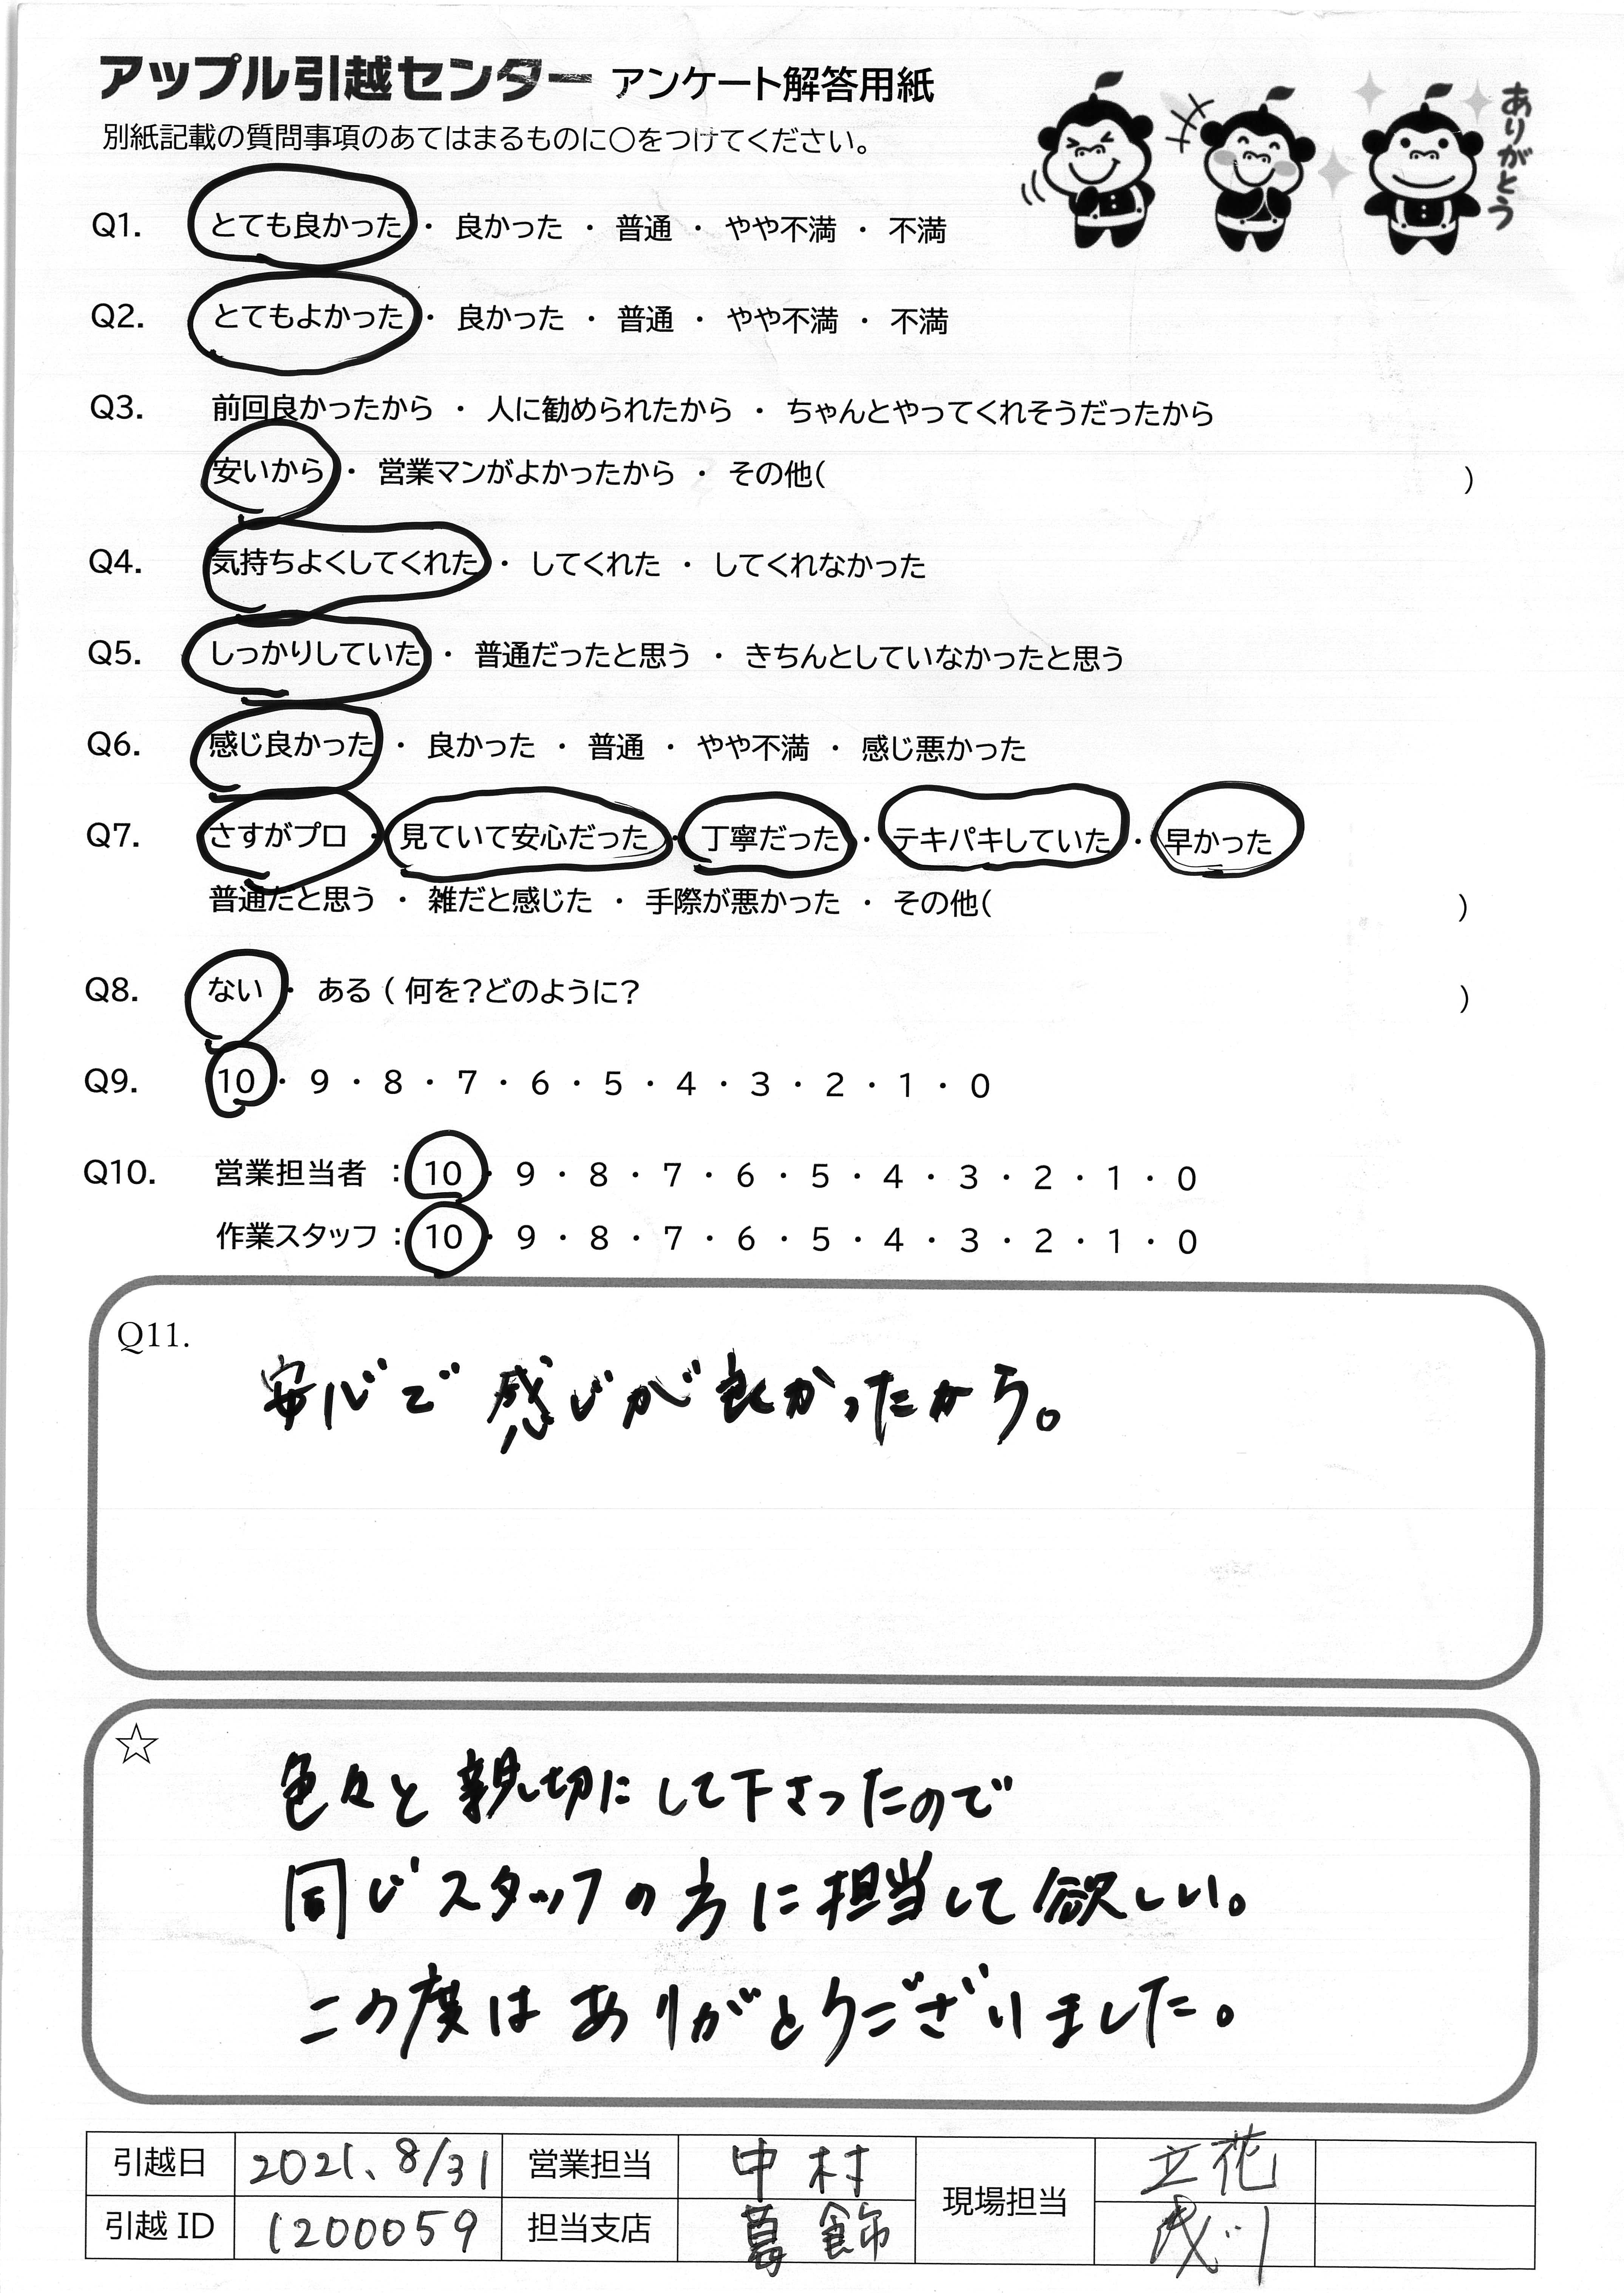 アップル引越センター アンケート解答用紙
ありがとう
別紙記載の質問事項のあてはまるものに〇をつけてください。
Q1. とても良かった ・ 良かった ・ 普通 ・ やや不満 ・ 不満
Q2. とてもよかった ・ 良かった ・ 普通 ・ やや不満 ・ 不満
Q3. 前回良かったから ・ 人に勧められたから ・ ちゃんとやってくれそうだったから
安いから ・ 営業マンがよかったから ・ その他( )
Q4. 気持ちよくしてくれた ・ してくれた ・ してくれなかった
Q5. しっかりしていた ・ 普通だったと思う ・ きちんとしていなかったと思う
Q6. 感じ良かった ・ 良かった ・ 普通 ・ やや不満 ・ 感じ悪かった
Q7. さすがプロ ・ 見ていて安心だった ・ 丁寧だった ・ テキパキしていた ・ 早かった
普通だと思う ・ 雑だと感じた ・ 手際が悪かった ・ その他( )
Q8. ない ・ ある ( 何を？どのように？ )
Q9. 10 ・ 9 ・ 8 ・ 7 ・ 6 ・ 5 ・ 4 ・ 3 ・ 2 ・ 1 ・ 0
Q10. 営業担当者 : 10 ・ 9 ・ 8 ・ 7 ・ 6 ・ 5 ・ 4 ・ 3 ・ 2 ・ 1 ・ 0
作業スタッフ : 10 ・ 9 ・ 8 ・ 7 ・ 6 ・ 5 ・ 4 ・ 3 ・ 2 ・ 1 ・ 0
Q11.
安心で 感じが良かったから。
☆
色々と親切にして下さったので
同じスタッフの方に担当して欲しい。
この度はありがとうございました。
引越日 2021、8/31 営業担当 中村 現場担当 立花
引越 ID 1200059 担当支店 葛飾